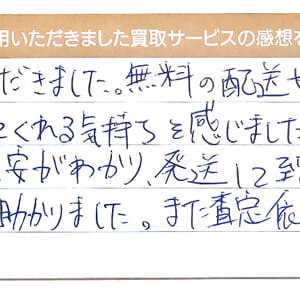 用いただきました買取サービスの感想を
だきました。無料の配送も
てくれる気持ちを感じました
安がわかり、発送して到
助かりました。また査定依